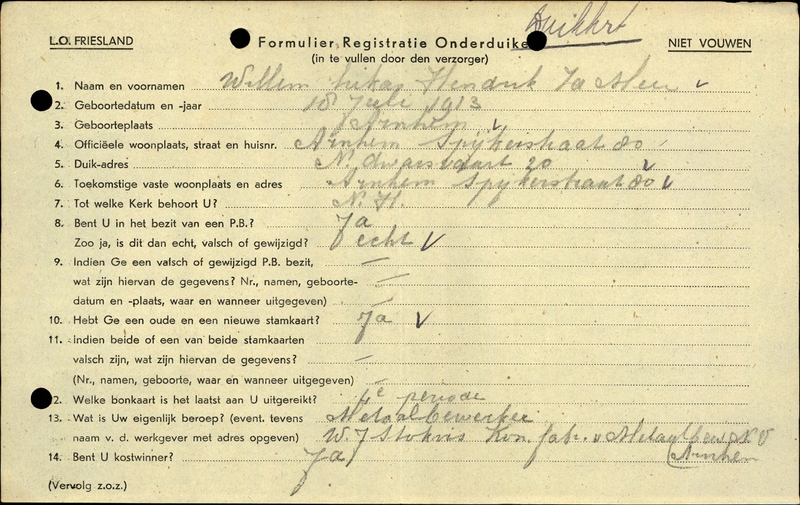 L.O. FRIESLAND
Formulier Registratie Onderduike
NIET VOUWEN
(in te vullen door den verzorger)
1. Naam en voornamen Willem Hendrik
2. Geboortedatum en -jaar 18 Juli 1913
3. Geboorteplaats Arnhem
4. Officiëele woonplaats, straat en huisnr. Arnhem Spijkerstraat 80
5. Duik-adres N. dwarsvaart 20
6. Toekomstige vaste woonplaats en adres Arnhem Spijkerstraat 80
7. Tot welke Kerk behoort U? N.H.
8. Bent U in het bezit van een P.B.? Ja
Zoo ja, is dit dan echt, valsch of gewijzigd? echt
9. Indien Ge een valsch of gewijzigd P.B. bezit, —
wat zijn hiervan de gegevens? Nr., namen, geboorte- —
datum en -plaats, waar en wanneer uitgegeven) —
10. Hebt Ge een oude en een nieuwe stamkaart? Ja
11. Indien beide of een van beide stamkaarten
valsch zijn, wat zijn hiervan de gegevens? —
(Nr., namen, geboorte, waar en wanneer uitgegeven) —
2. Welke bonkaart is het laatst aan U uitgereikt? 4e periode
13. Wat is Uw eigenlijk beroep? (event. tevens Metaalbewerker
naam v. d. werkgever met adres opgeven) W.J Stokvis Kon. fabr. v Metaalbew N.V
14. Bent U kostwinner? Ja (Arnhem
(Vervolg z.o.z.)